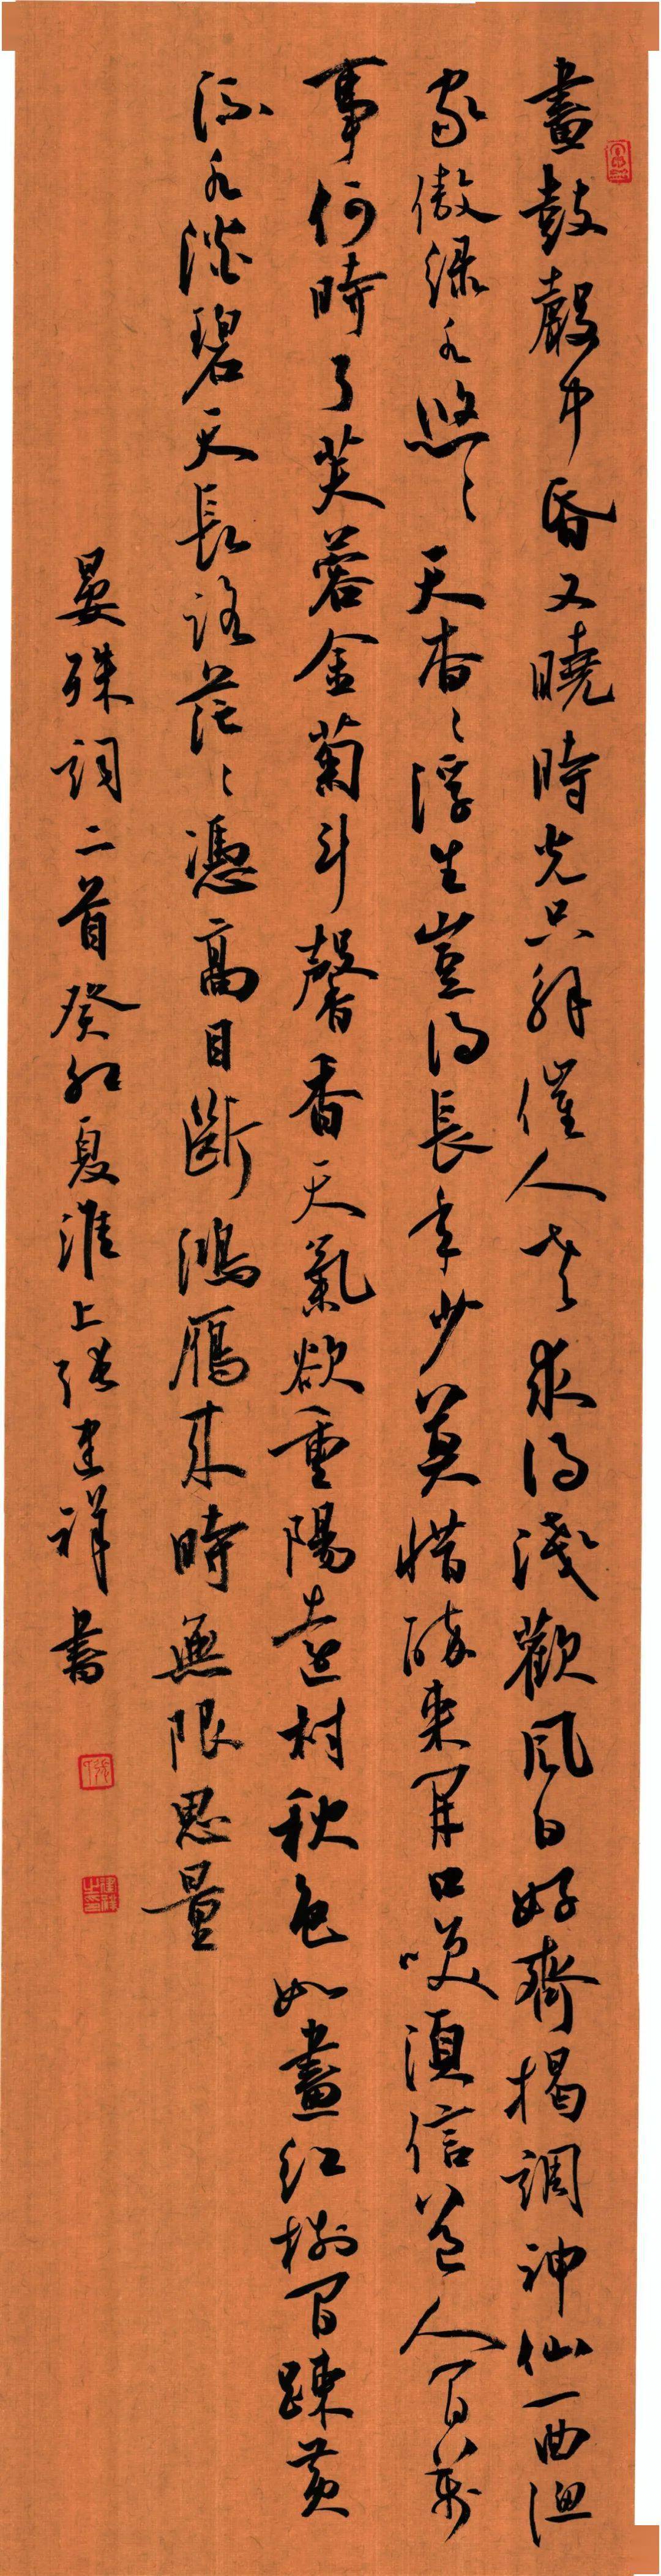 畫鼓聲中昏又曉時光只解催人老求得淺歡風日好齊揭調神仙一曲漁
家傲綠水悠〻天杳〻浮生豈得長年少莫惜醉來開口笑須信道人間萬
事何時了芙蓉金菊斗馨香天氣欲重陽遠村秋色如畫紅樹間疎黃
流水淡碧天長路茫〻憑高目斷鴻鴈來時無限思量
晏殊詞二首癸卯夏淮上張建祥書
建祥之印